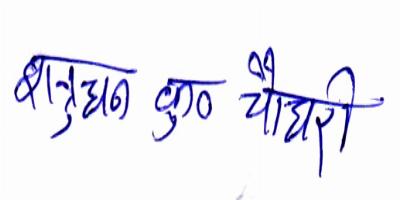 शत्रुघन कु० चौधरी